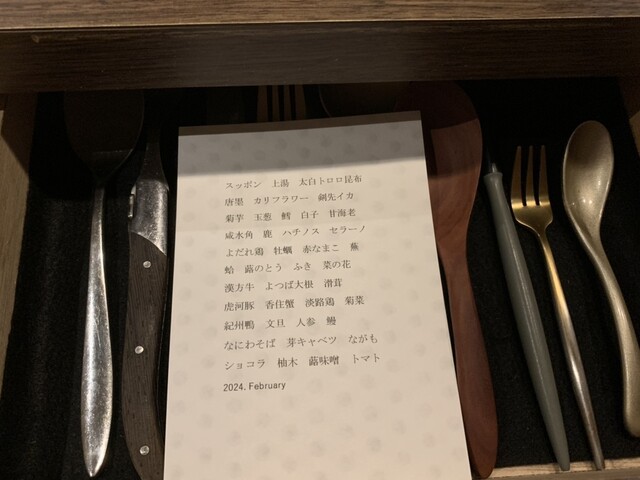 スッポン 上湯 太白トロロ昆布
唐墨 カリフラワー 剣先イカ
菊芋 玉葱 鱈 白子 甘海老
咸水角 鹿 ハチノス セラーノ
よだれ鶏 牡蠣 赤なまこ 蕪
蛤 蕗のとう ふき 菜の花
漢方牛 よつば大根 滑茸
虎河豚 香住蟹 淡路鶏 菊菜
紀州鴨 文旦 人参 鰻
なにわそば 芽キャベツ ながも
ショコラ 柚木 蕗味噌 トマト
2024. February